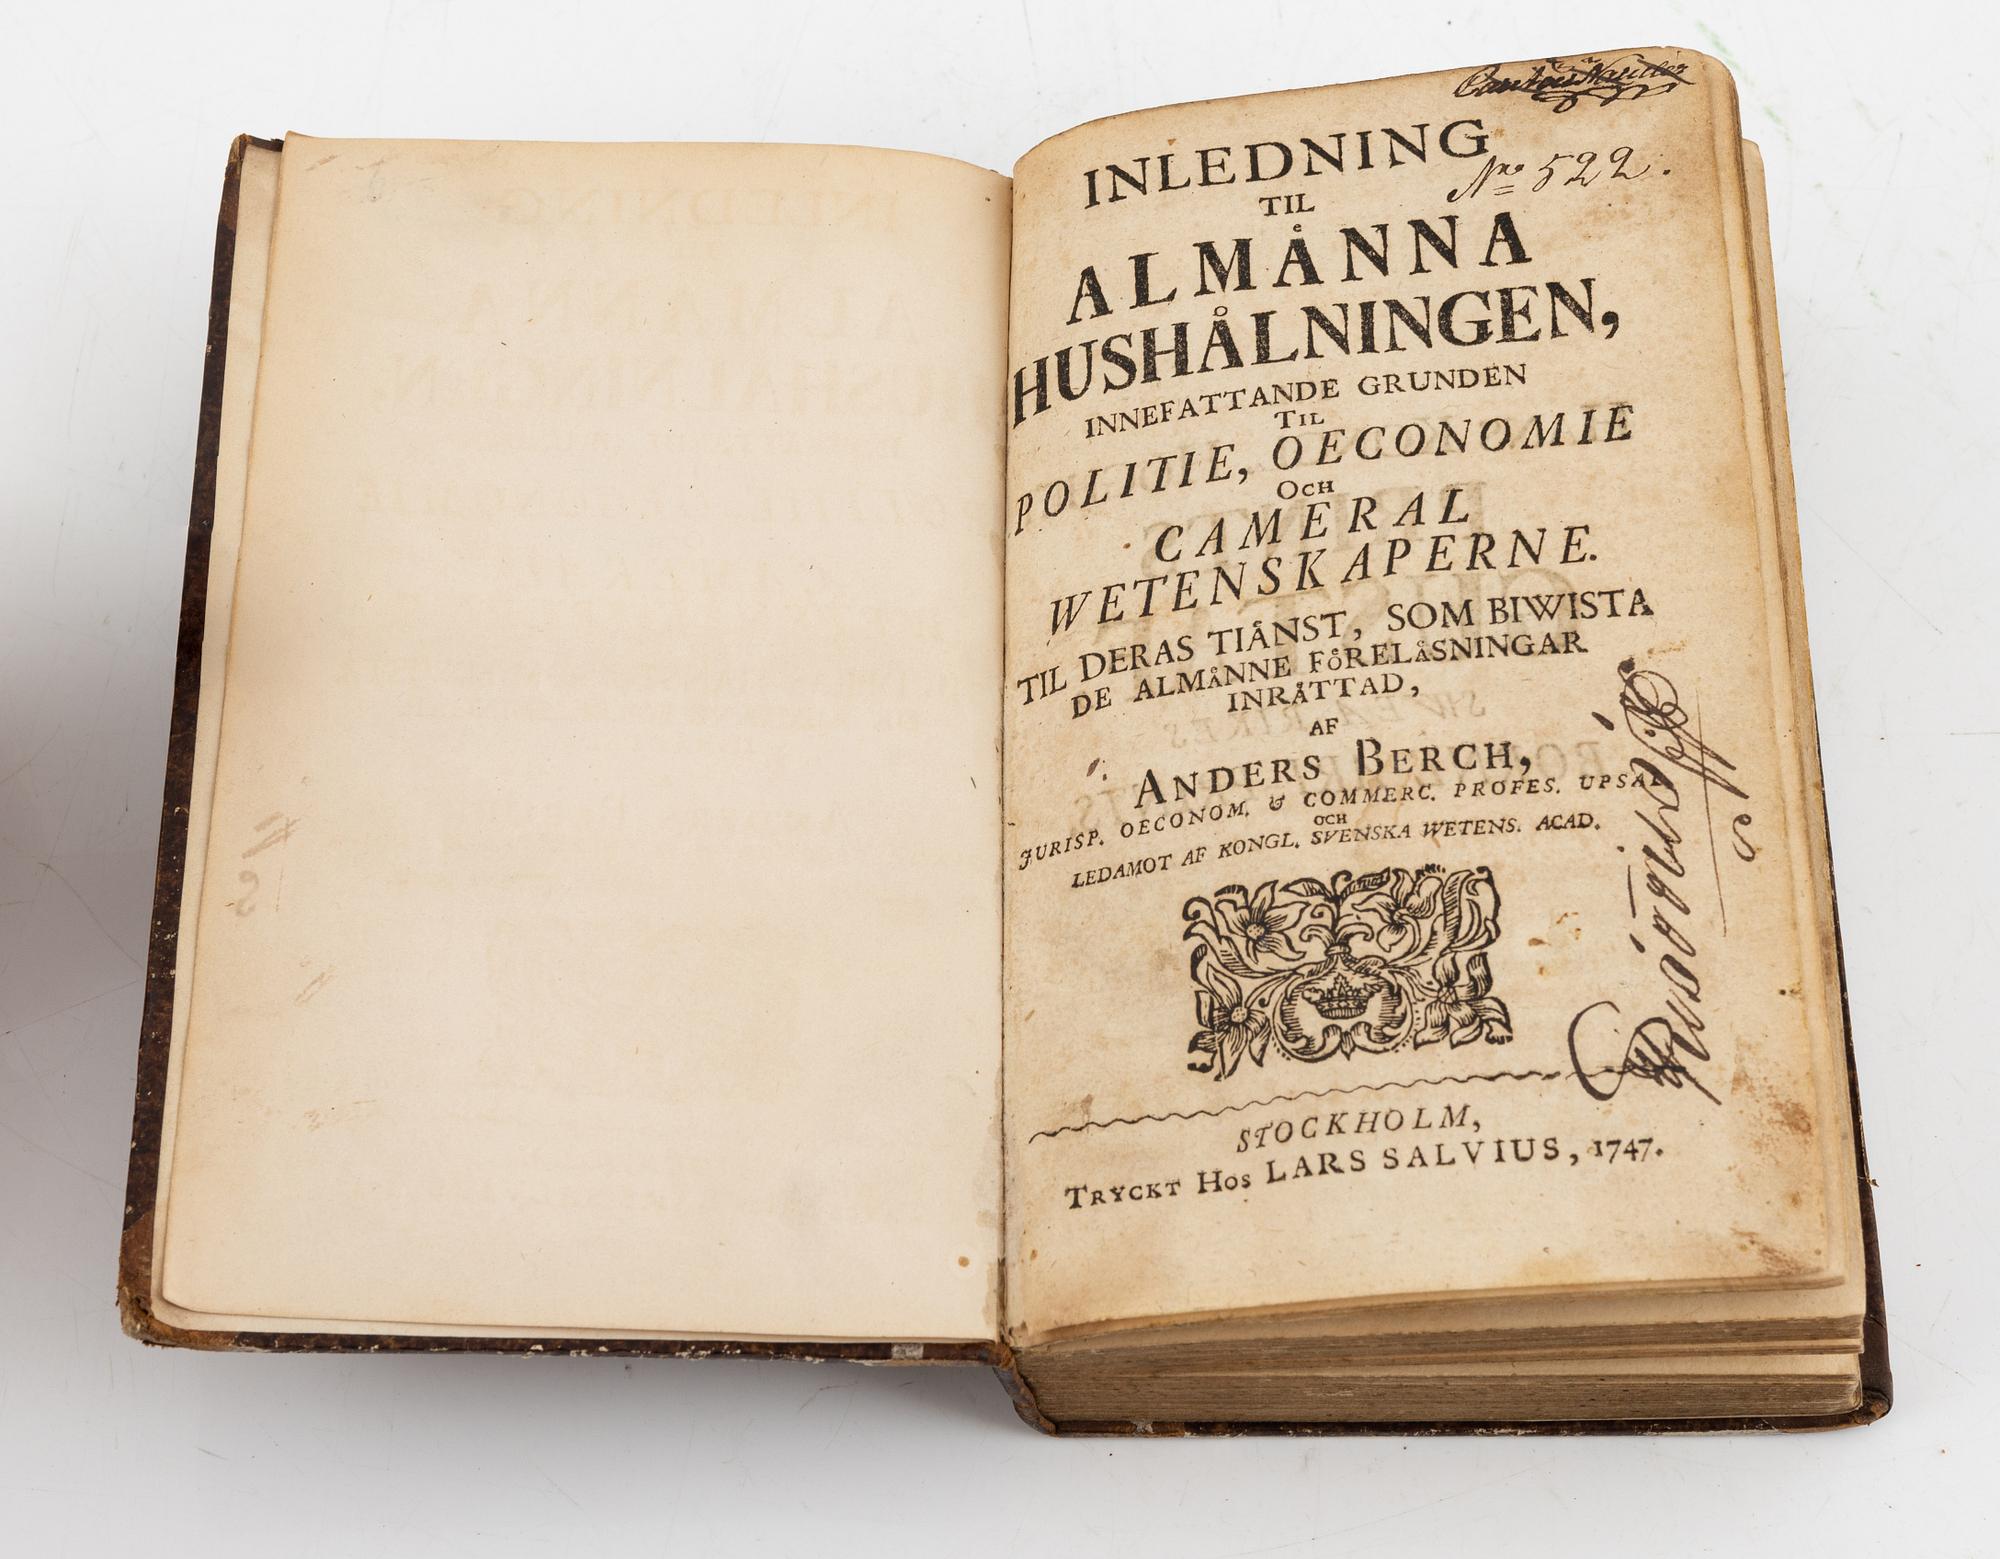 INLEDNING
Nro 522.
TIL
ALMÅNNA
HUSHÅLNINGEN,
INNEFATTANDE GRUNDEN
TIL
POLITIE, OECONOMIE
OCH
CAMERAL
WETENSKAPERNE.
TIL DERAS TIÅNST, SOM BIWISTA
DE ALMÅNNE FÖRELÅSNINGAR
INRÅTTAD,
AF
ANDERS BERCH,
JURISP. OECONOM. & COMMERC. PROFES. UPSAL
OCH
LEDAMOT AF KONGL. SVENSKA WETENS. ACAD.
STOCKHOLM,
TRYCKT HOS LARS SALVIUS, 1747.